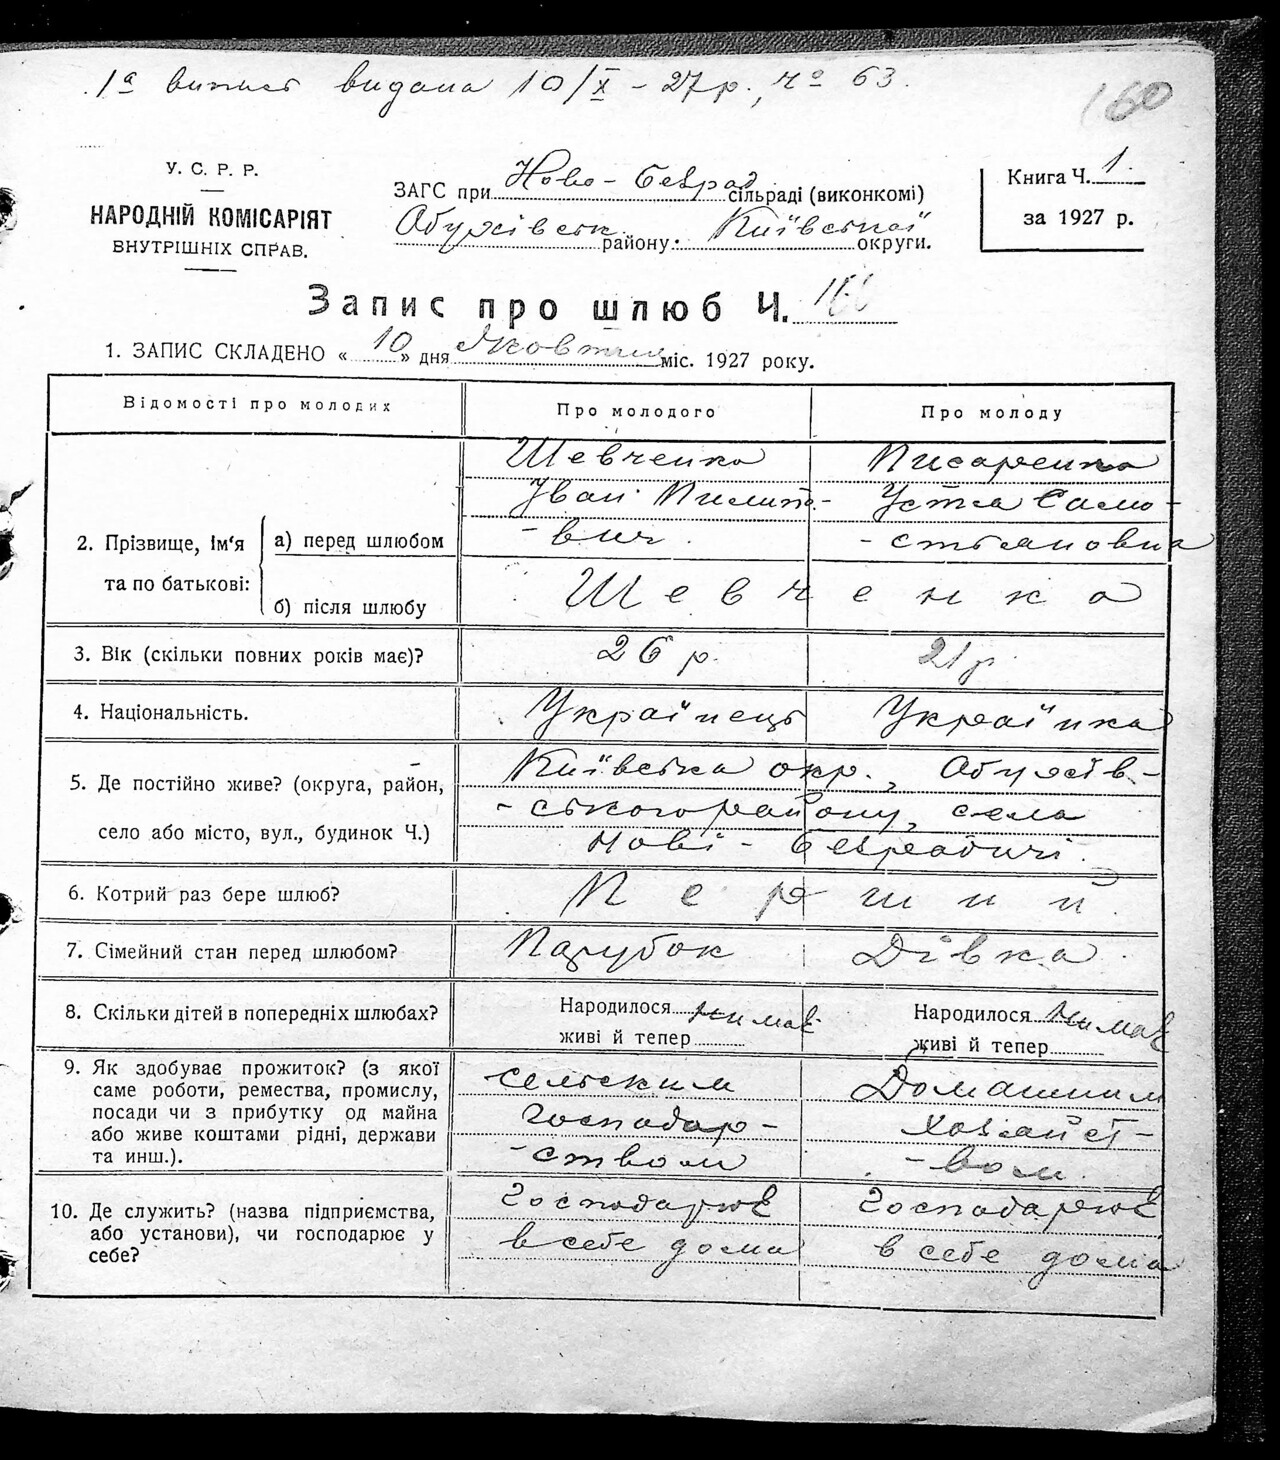 1а випись видана 10/X – 27 р., чо 63.
160
У. С. Р. Р.
НАРОДНІЙ КОМІСАРІЯТ
ВНУТРІШНІХ СПРАВ.
ЗАГС при Ново-Безрад сільраді (виконкомі)
Обухівськ району Київської округи.
Книга Ч. 1.
за 1927 р.
Запис про шлюб Ч. 160
1. ЗАПИС СКЛАДЕНО « 10 » дня Жовтня міс. 1927 року.
Відомості про молодих Про молодого Про молоду
2. Прізвище, ім'я та по батькові:
а) перед шлюбом
Шевченко
Іван Пилипо-
-вич.
Писаренко
Устя Само-
-стьяновна
б) після шлюбу
Шевченко
3. Вік (скільки повних років має)? 26 р. 21 р.
4. Національність. Українець Українка
5. Де постійно живе? (округа, район,
село або місто, вул., будинок Ч.)
Київська окр., Обухів-
-ського району, села
Нові-Безрадичі.
6. Котрий раз бере шлюб? Перший
7. Сімейний стан перед шлюбом? Парубок Дівка
8. Скільки дітей в попередніх шлюбах?
Народилося нимає
живі й тепер
Народилося нимає
живі й тепер
9. Як здобуває прожиток? (з якої
саме роботи, ремества, промислу,
посади чи з прибутку од майна
або живе коштами рідні, держави
та инш.).
сельским
господар-
-ством
Домашним
хозяйст-
-вом.
10. Де служить? (назва підприємства,
або установи), чи господарює у
себе?
Господарює
в себе дома
Господарює
в себе дома